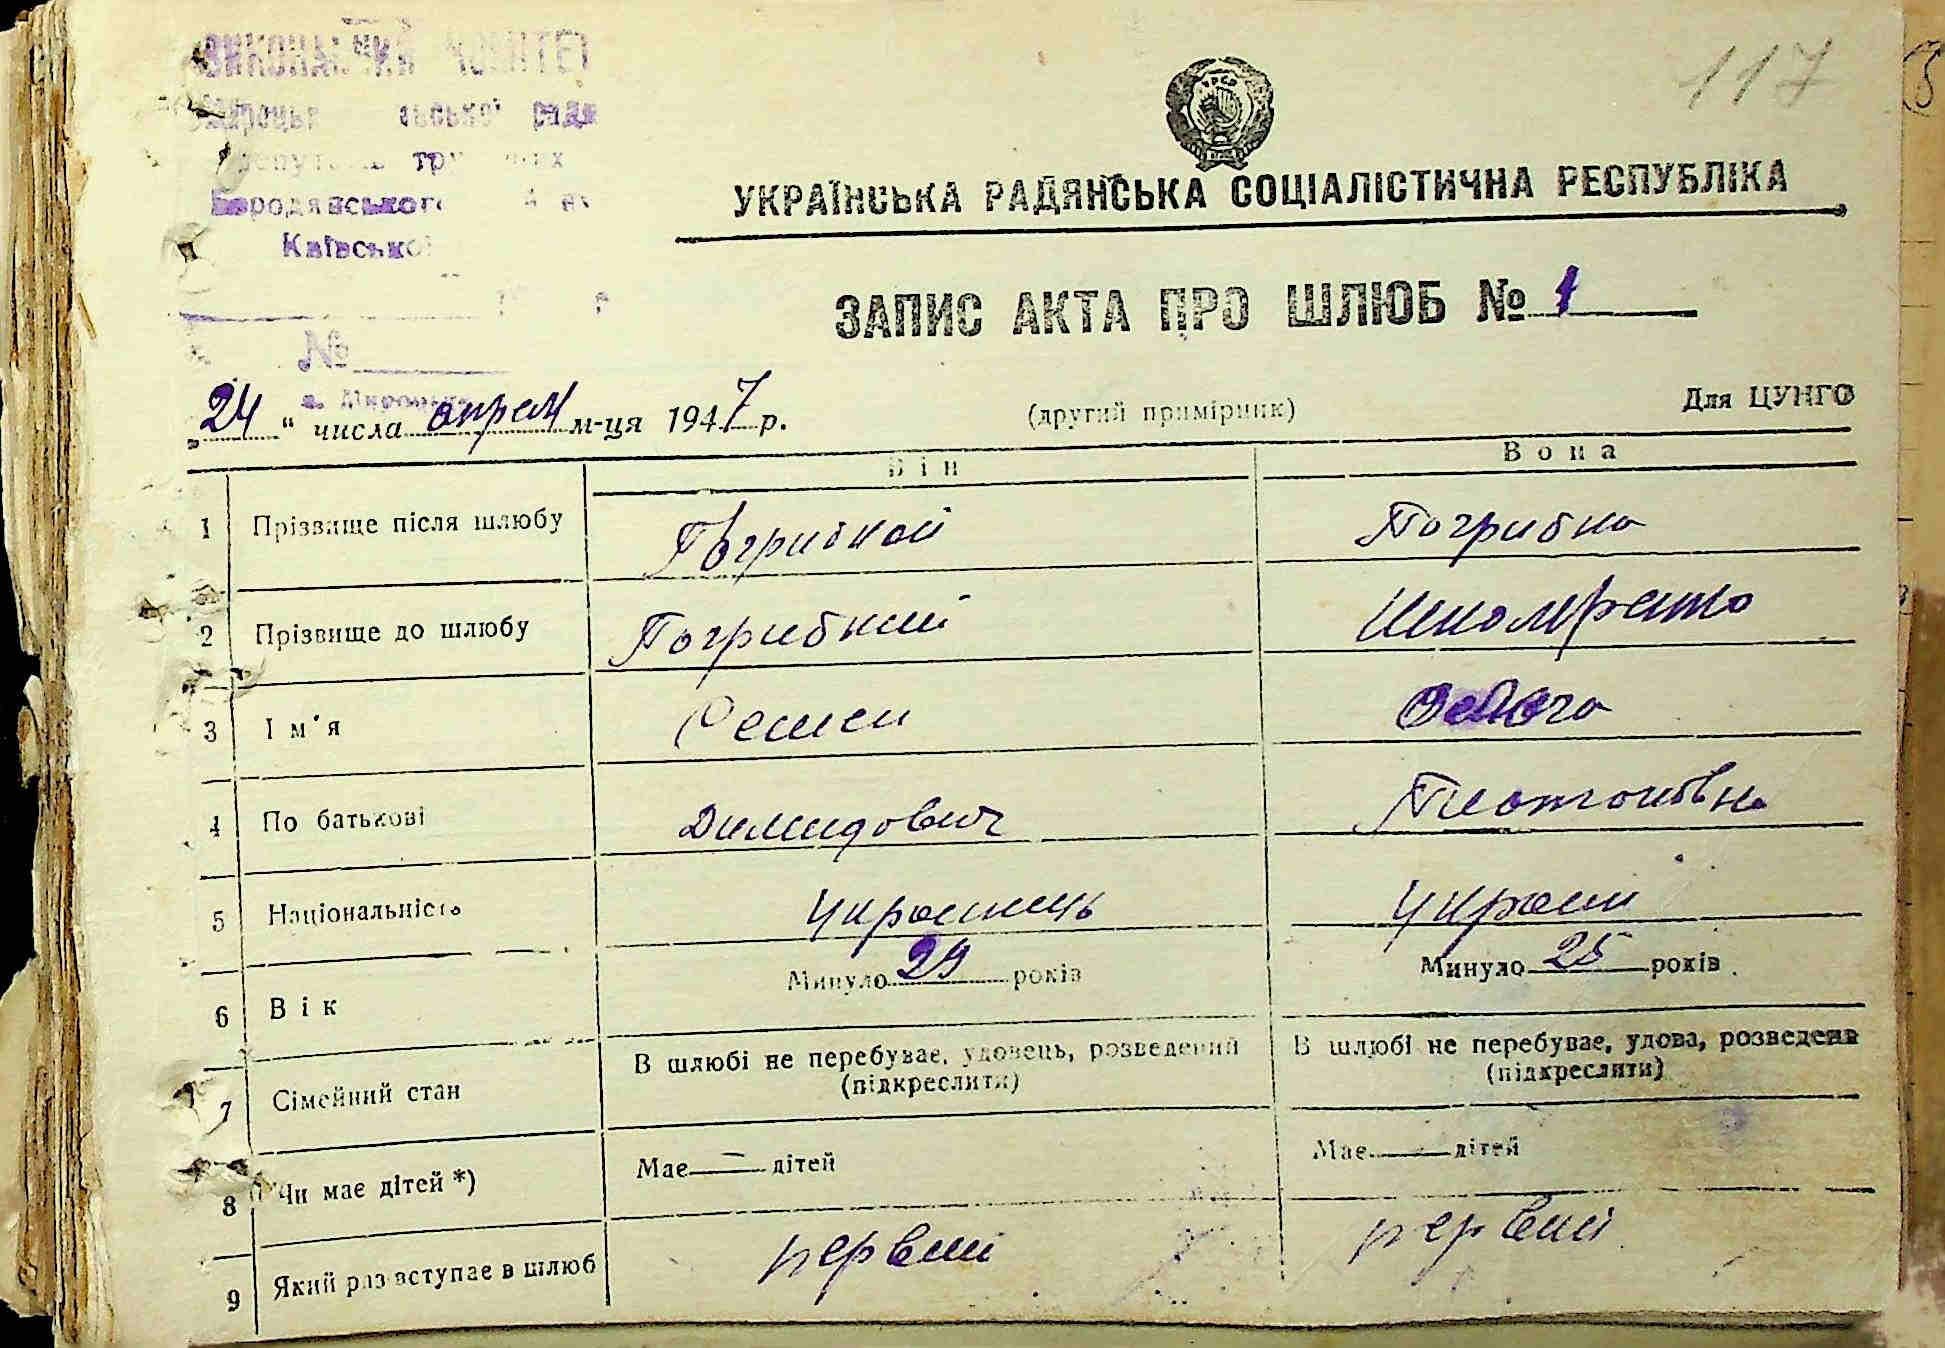 117
ВИКОНАВЧИЙ КОМІТЕТ
ради
Бородянського
Київської
УКРАЇНСЬКА РАДЯНСЬКА СОЦІАЛІСТИЧНА РЕСПУБЛІКА
ЗАПИС АКТА ПРО ШЛЮБ № 1
№
„24“ числа апреля м-ця 1947 р. (другий примірник) Для ЦУНГО
Він Вона
1 Прізвище після шлюбу Погрибной Погрибна
2 Прізвище до шлюбу Погрибний
3 Ім'я Семен
4 По батькові Димидович Платоновна
5 Національність Українець Україн
6 Вік Минуло 29 років Минуло 25 років
7 Сімейний стан В шлюбі не перебуває, удовець, розведений (підкреслити) В шлюбі не перебуває, удова, розведена (підкреслити)
8 Чи має дітей *) Має — дітей Має дітей
9 Який раз вступає в шлюб первий первий